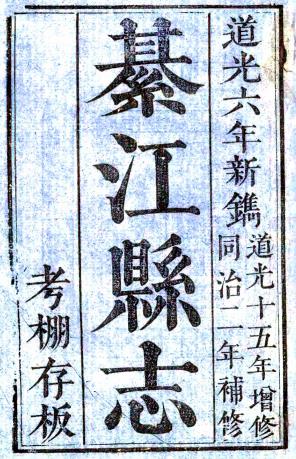 道光六年新鐫
道光十五年增修
同治二年補修
綦江縣志
考棚存板